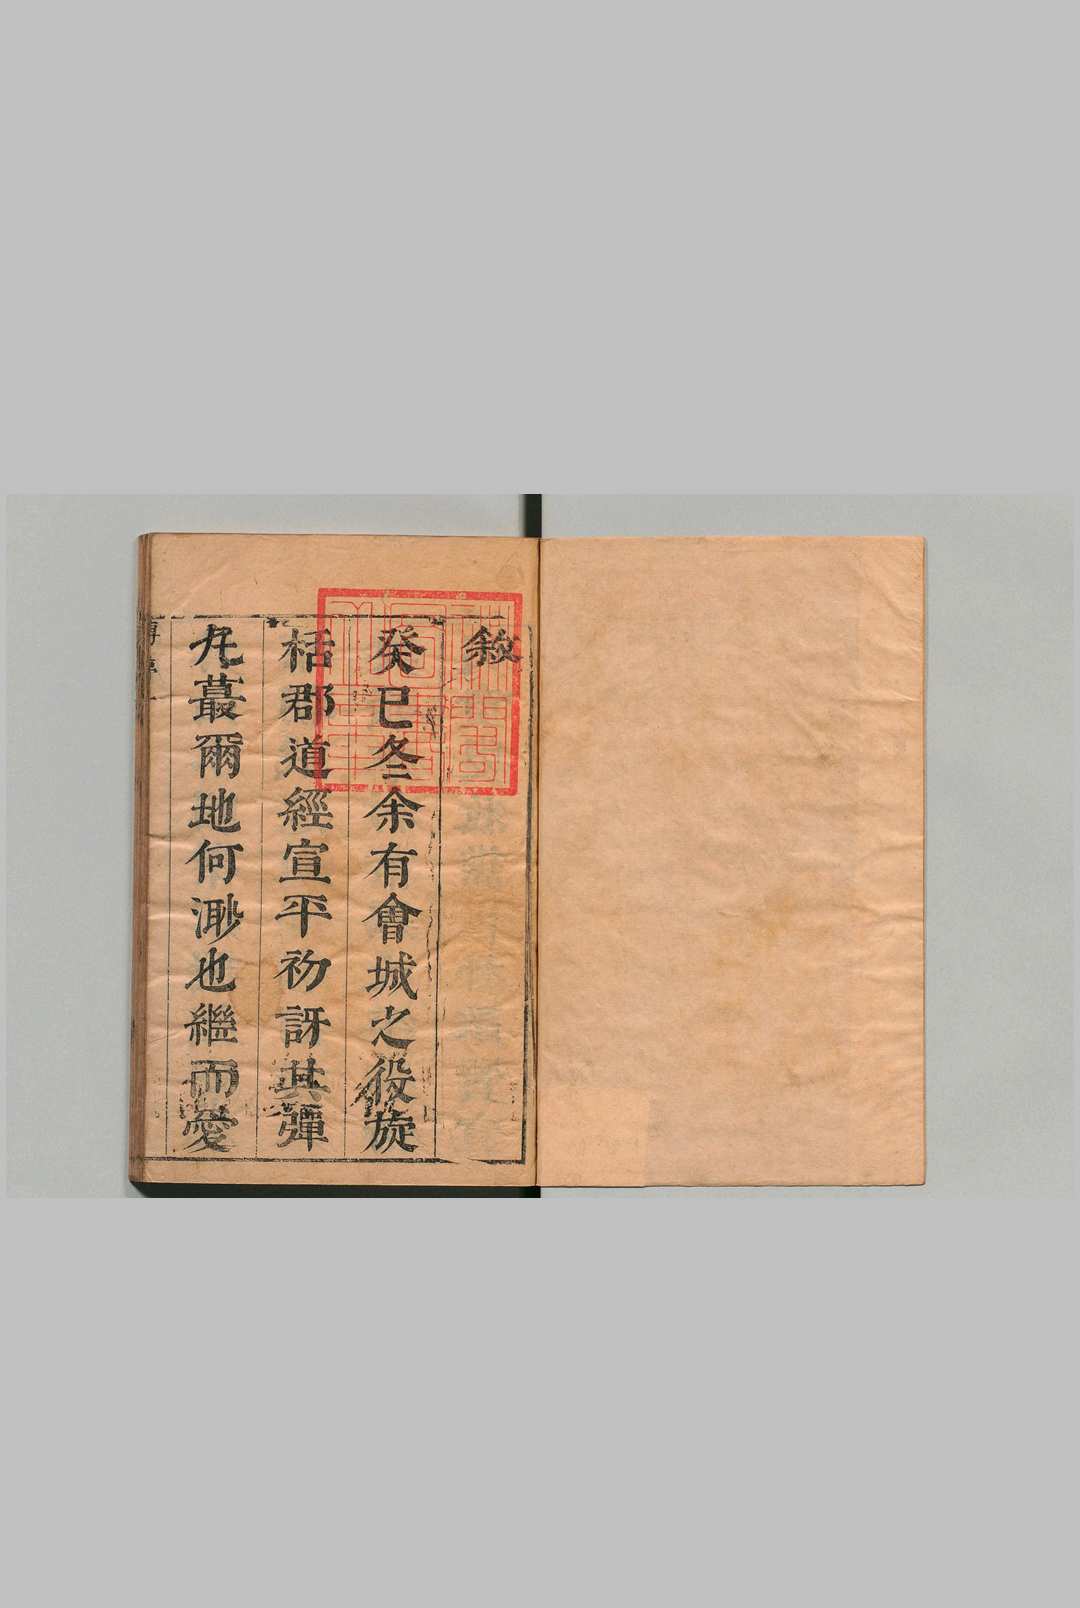 敘
癸巳冬余有會城之役旋
栝郡道經宣平初訝其彈
丸蕞爾地何渺也繼而愛